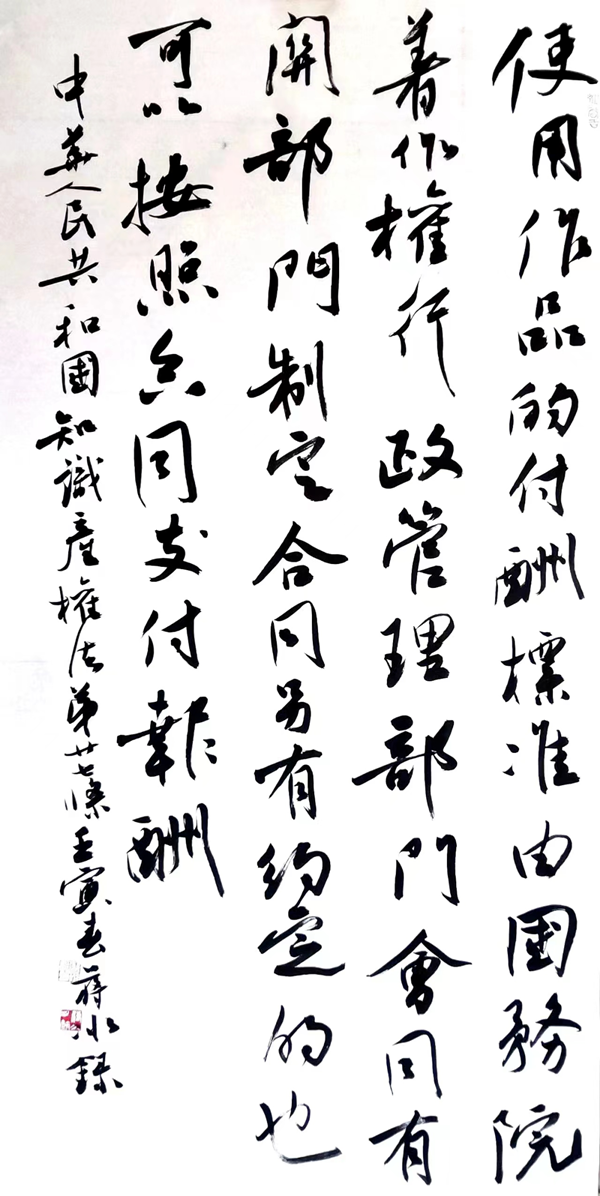 使用作品的付酬標准由國務院
著作權行政管理部門會同有
關部門制定合同另有約定的也
可以按照合同支付報酬
中華人民共和國知識産權法第廿七條壬寅春蔣水錄